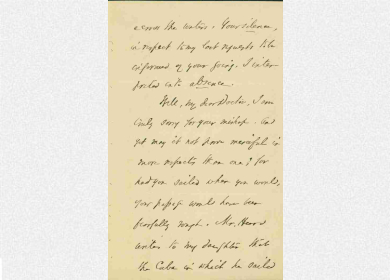 across the water. Your silence,
in respect to my last requests to be
informed of your going, I inter-
preted into absence.
Well, my dear Doctor, I am
truly sorry for your mishap. And
yet may it not prove merciful in
more respects than one? for
had you sailed when you would,
your passage would have been
fearfully rough. Mr.
writes to my daughter that
the Cuba in which he sailed